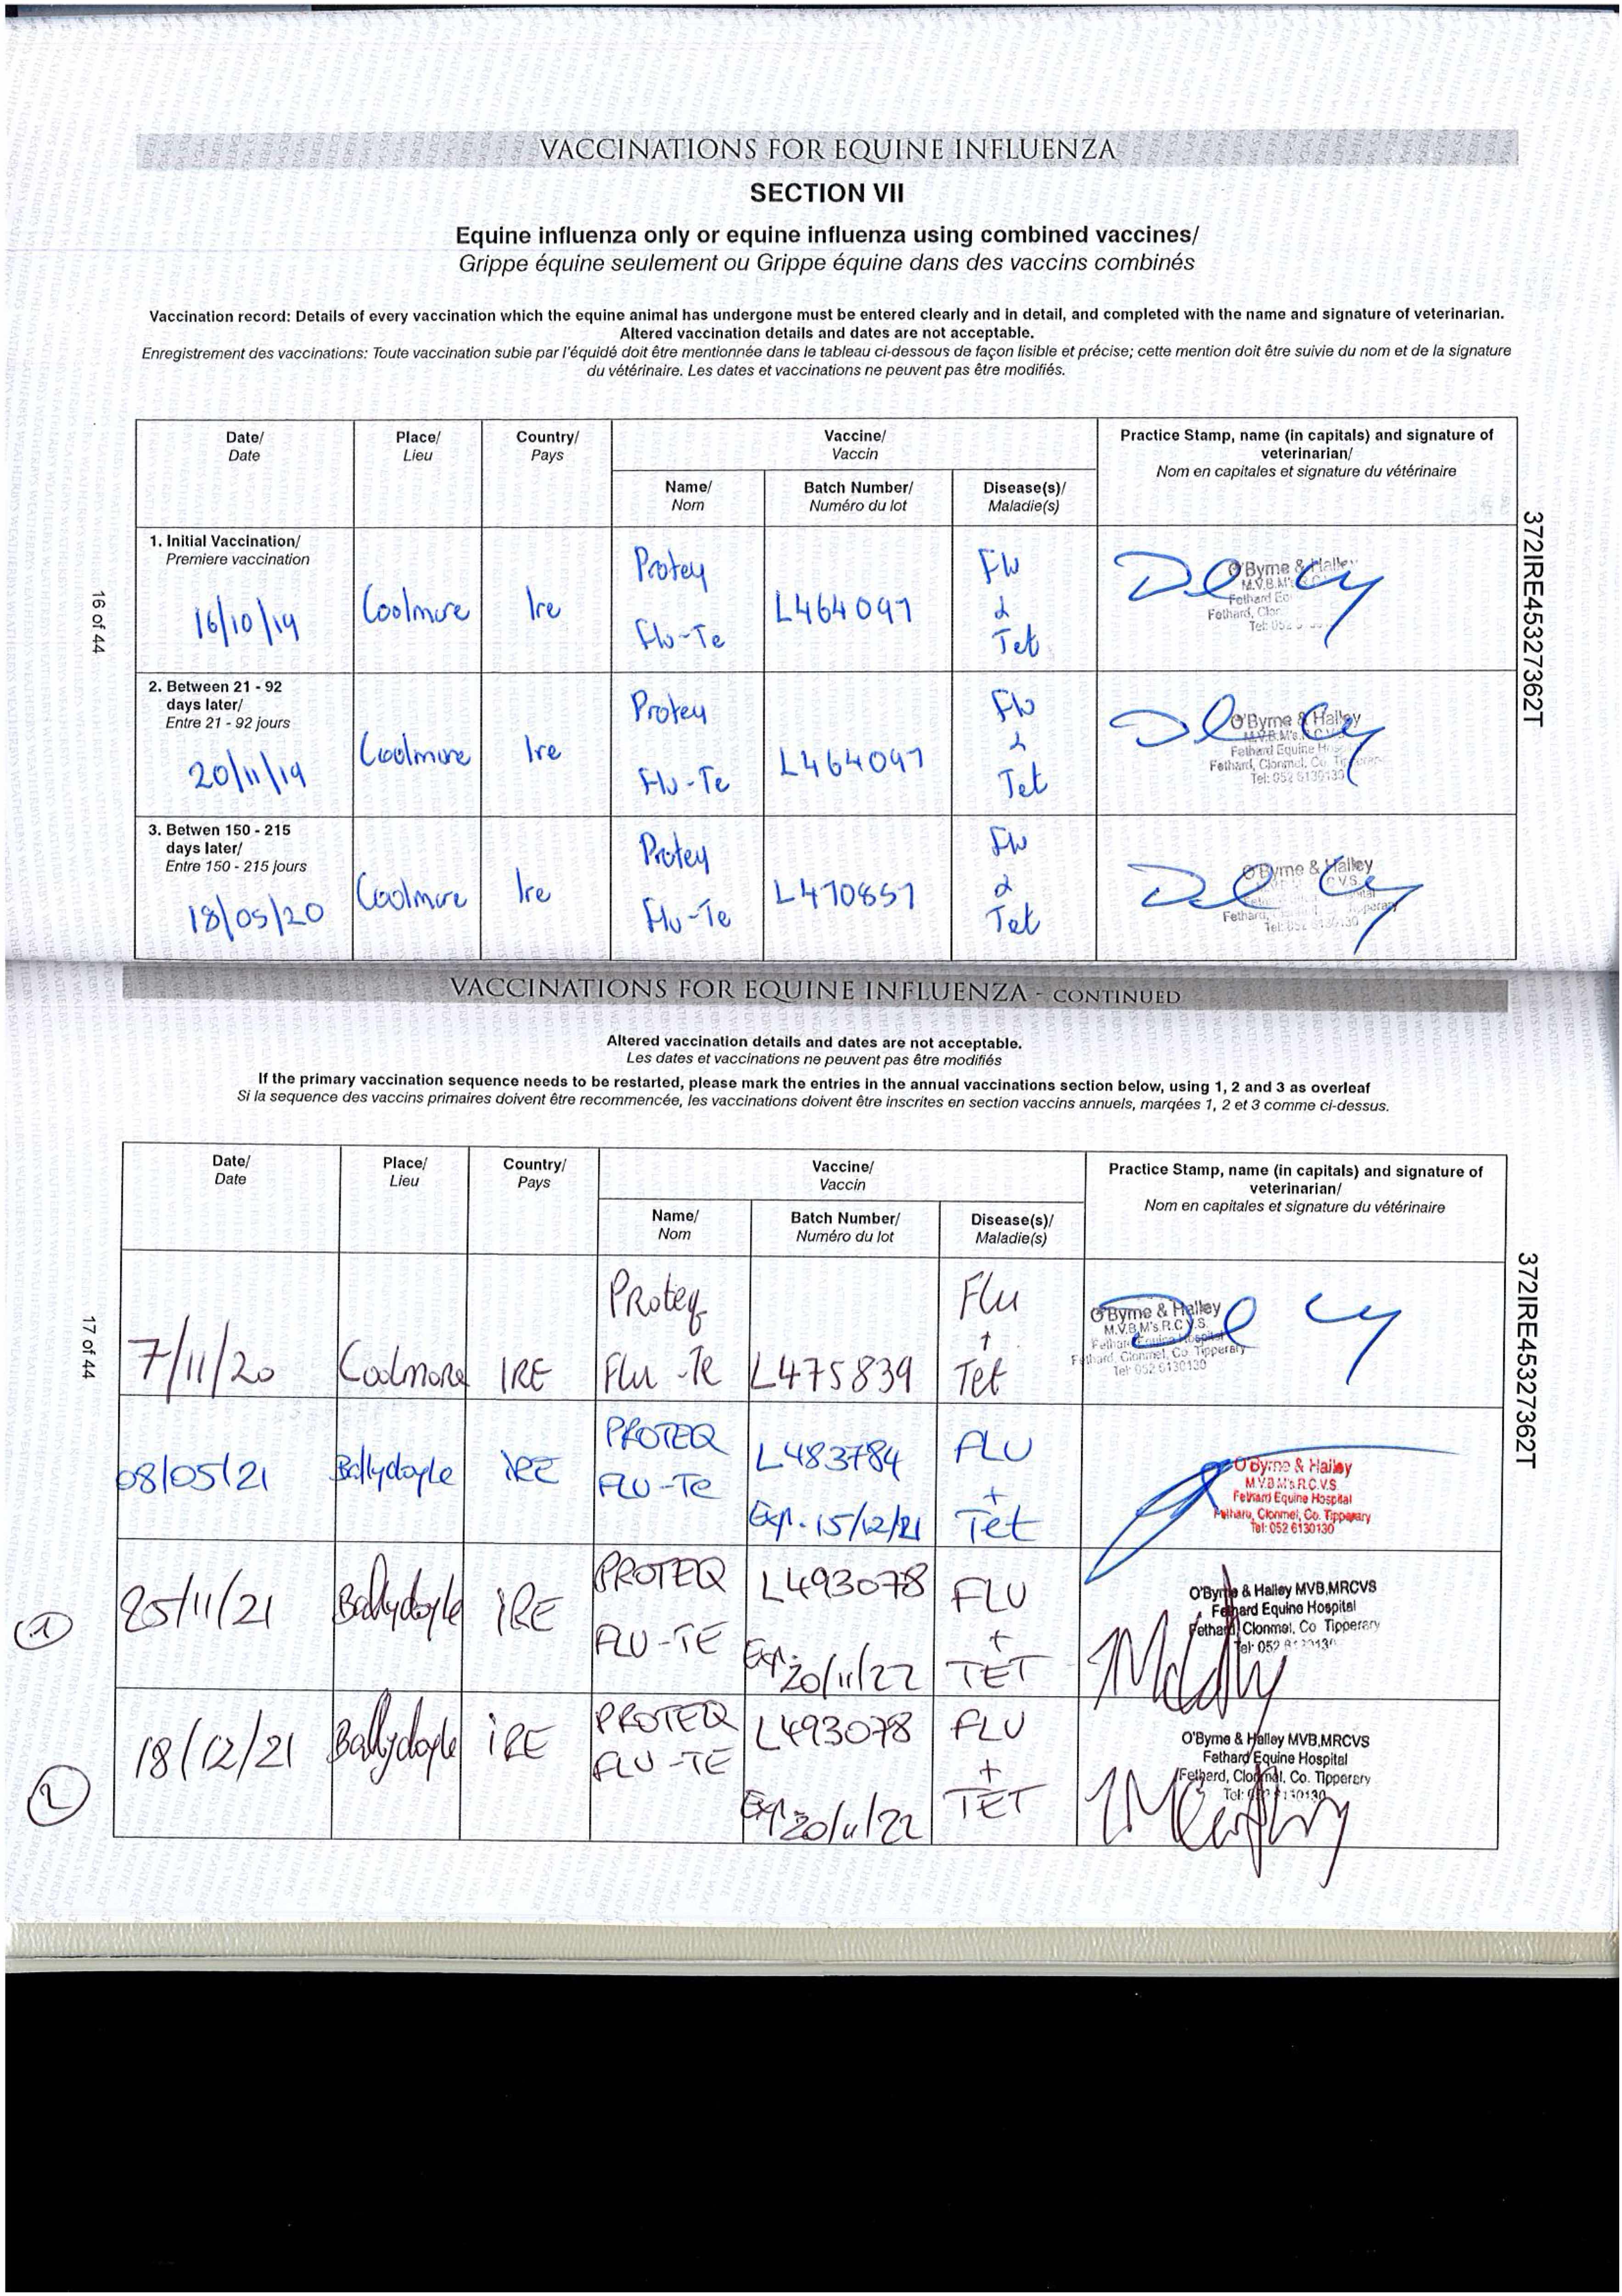 VACCINATIONS FOR EQUINE INFLUENZA
SECTION VII
Equine influenza only or equine influenza using combined vaccines/
Grippe équine seulement ou Grippe équine dans des vaccins combinés
Vaccination record: Details of every vaccination which the equine animal has undergone must be entered clearly and in detail, and completed with the name and signature of veterinarian.
Altered vaccination details and dates are not acceptable.
Enregistrement des vaccinations: Toute vaccination subie par l'équidé doit être mentionnée dans le tableau ci-dessous de façon lisible et précise; cette mention doit être suivie du nom et de la signature
du vétérinaire. Les dates et vaccinations ne peuvent pas être modifiés.
Date/ Place/ Country/ Vaccine/ Practice Stamp, name (in capitals) and signature of
Date Lieu Pays Vaccin veterinarian/
Nom en capitales et signature du vétérinaire
Name/ Batch Number/ Disease(s)/
Nom Numéro du lot Maladie(s)
1. Initial Vaccination/
Premiere vaccination
16/10/19 Coolmore Ire Proteq L464097 Flu
Flu-Te & Tet
O'Byrne & Halley
Fethard
Fethard,
2. Between 21 - 92
days later/
Entre 21 - 92 jours
20/11/19 Coolmore Ire Proteq L464097 Flu
Flu-Te & Tet
O'Byrne & Halley
M.V.B.M's.R.C.V.S.
Fethard Equine
Fethard, Clonmel, Co. Tipperary
Tel: 052 6130130
3. Betwen 150 - 215
days later/
Entre 150 - 215 jours
18/05/20 Coolmore Ire Proteq L470857 Flu
Flu-Te & Tet
O'Byrne & Halley
Fethard,
16 of 44
372IRE45327362T
VACCINATIONS FOR EQUINE INFLUENZA - CONTINUED
Altered vaccination details and dates are not acceptable.
Les dates et vaccinations ne peuvent pas être modifiés
If the primary vaccination sequence needs to be restarted, please mark the entries in the annual vaccinations section below, using 1, 2 and 3 as overleaf
Si la sequence des vaccins primaires doivent être recommencée, les vaccinations doivent être inscrites en section vaccins annuels, marqées 1, 2 et 3 comme ci-dessus.
Date/ Place/ Country/ Vaccine/ Practice Stamp, name (in capitals) and signature of
Date Lieu Pays Vaccin veterinarian/
Nom en capitales et signature du vétérinaire
Name/ Batch Number/ Disease(s)/
Nom Numéro du lot Maladie(s)
7/11/20 Coolmore IRE Proteq L475839 Flu
Flu-Te + Tet
O'Byrne & Halley
M.V.B.M's.R.C.V.S.
Fethard Equine Hospital
Fethard, Clonmel, Co. Tipperary
Tel: 052 6130130
08/05/21 Ballydoyle IRE PROTEQ L483784 FLU
FLU-Te Exp. 15/12/21 + Tet
O'Byrne & Halley
M.V.B.M's.R.C.V.S.
Fethard Equine Hospital
Fethard, Clonmel, Co. Tipperary
Tel: 052 6130130
1 25/11/21 Ballydoyle IRE PROTEQ L493078 FLU
FLU-TE Exp. 20/11/22 + TET
O'Byrne & Halley MVB,MRCVS
Fethard Equine Hospital
Fethard, Clonmel, Co Tipperary
2 18/12/21 Ballydoyle IRE PROTEQ L493078 FLU
FLU-TE Exp. 20/11/22 + TET
O'Byrne & Halley MVB,MRCVS
Fethard Equine Hospital
Fethard, Clonmel, Co. Tipperary
17 of 44
372IRE45327362T